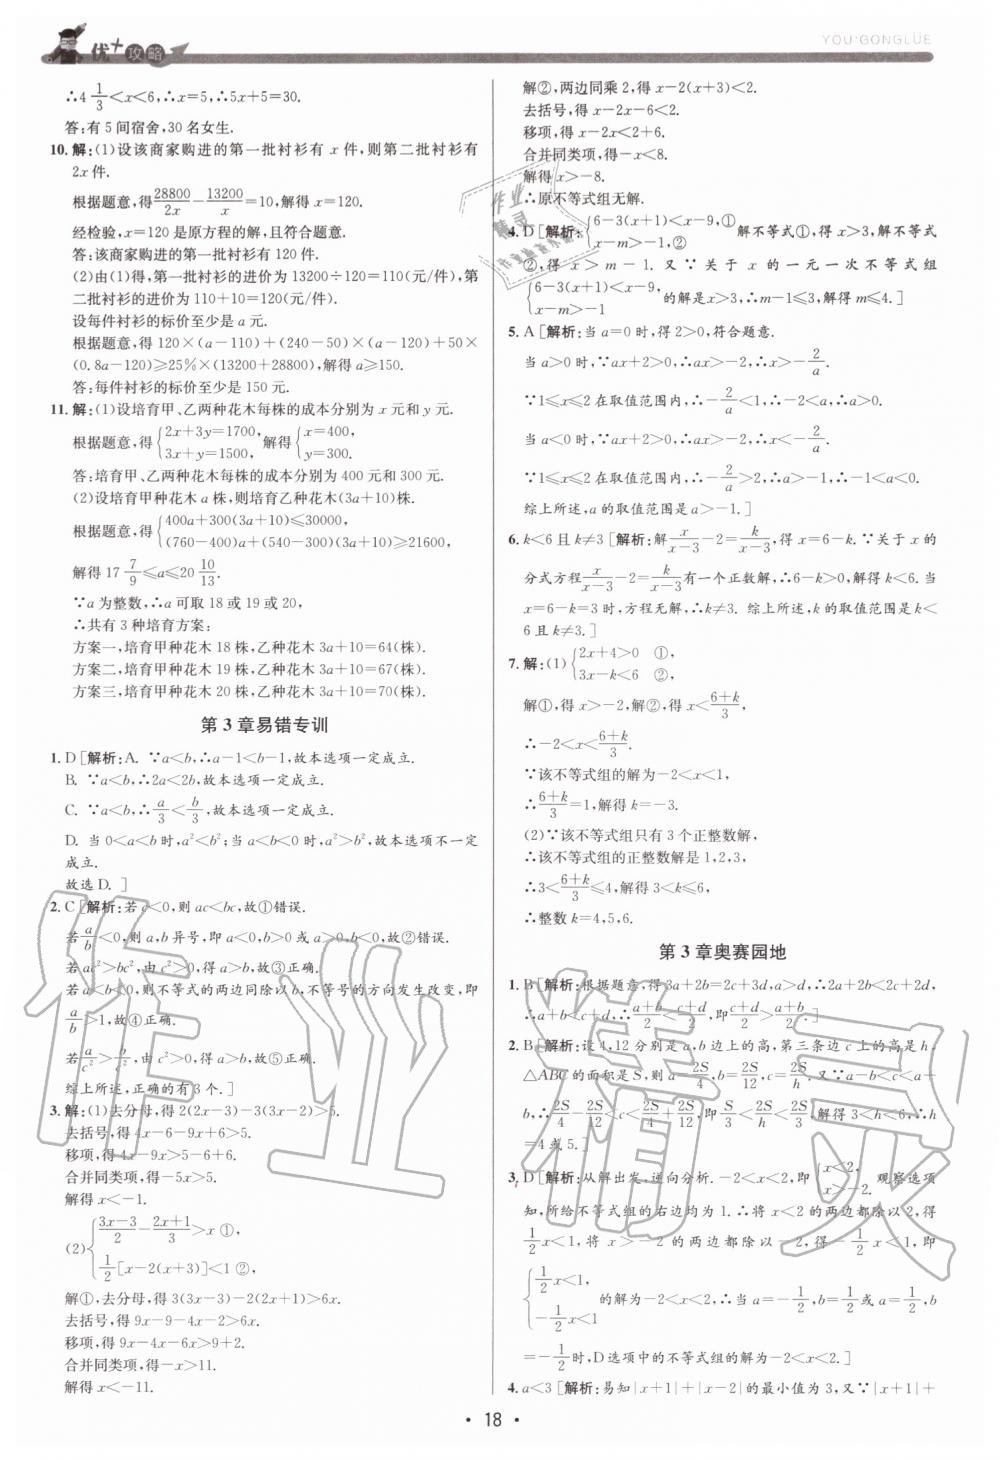 优+攻略
YOU+GONGLÜE
∴4 1/3<x<6,∴x=5,∴5x+5=30.
答:有5间宿舍,30名女生.
10.解:(1)设该商家购进的第一批衬衫有x件,则第二批衬衫有
2x件.
根据题意,得28800/2x-13200/x=10,解得x=120.
经检验,x=120是原方程的解,且符合题意.
答:该商家购进的第一批衬衫有120件.
(2)由(1)得,第一批衬衫的进价为13200÷120=110(元/件),第
二批衬衫的进价为110+10=120(元/件).
设每件衬衫的标价至少是a元.
根据题意,得120×(a-110)+(240-50)×(a-120)+50×
(0.8a-120)≥25%×(13200+28800),解得a≥150.
答:每件衬衫的标价至少是150元.
11.解:(1)设培育甲、乙两种花木每株的成本分别为x元和y元.
根据题意,得{2x+3y=1700, 3x+y=1500,解得{x=400, y=300.
答:培育甲、乙两种花木每株的成本分别为400元和300元.
(2)设培育甲种花木a株,则培育乙种花木(3a+10)株.
根据题意,得{400a+300(3a+10)≤30000, (760-400)a+(540-300)(3a+10)≥21600,
解得17 7/9≤a≤20 10/13.
∵a为整数,∴a可取18或19或20,
∴共有3种培育方案:
方案一,培育甲种花木18株,乙种花木3a+10=64(株).
方案二,培育甲种花木19株,乙种花木3a+10=67(株).
方案三,培育甲种花木20株,乙种花木3a+10=70(株).
第3章易错专训
1. D[解析:A. ∵a<b,∴a-1<b-1,故本选项一定成立.
B. ∵a<b,∴2a<2b,故本选项一定成立.
C. ∵a<b,∴a/3<b/3,故本选项一定成立.
D. 当0<a<b时,a²<b²;当a<b<0时,a²>b²,故本选项不一定
成立.
故选D. ]
2. C[解析:若c<0,则ac<bc,故①错误.
若a/b<0,则a,b异号,即a<0,b>0或a>0,b<0,故②错误.
若ac²>bc²,由c²>0,得a>b,故③正确.
若a<b<0,则不等式的两边同除以b,不等号的方向发生改变,即
a/b>1,故④正确.
若a/c²>b/c²,由c²>0,得a>b,故⑤正确.
综上所述,正确的有3个. ]
3. 解:(1)去分母,得2(2x-3)-3(3x-2)>5.
去括号,得4x-6-9x+6>5.
移项,得4x-9x>5-6+6.
合并同类项,得-5x>5.
解得x<-1.
(2){3x-3/2-2x+1/3>x ①, 1/2[x-2(x+3)]<1 ②,
解①,去分母,得3(3x-3)-2(2x+1)>6x.
去括号,得9x-9-4x-2>6x.
移项,得9x-4x-6x>9+2.
合并同类项,得-x>11.
解得x<-11.
解②,两边同乘2,得x-2(x+3)<2.
去括号,得x-2x-6<2.
移项,得x-2x<2+6.
合并同类项,得-x<8.
解得x>-8.
∴原不等式组无解.
4. D[解析:{6-3(x+1)<x-9,① x-m>-1,② 解不等式①,得x>3,解不等式
②,得x>m-1. 又∵关于x的一元一次不等式组
{6-3(x+1)<x-9, x-m>-1 的解是x>3,∴m-1≤3,解得m≤4. ]
5. A[解析:当a=0时,得2>0,符合题意.
当a>0时,∵ax+2>0,∴ax>-2,∴x>-2/a.
∵1≤x≤2在取值范围内,∴-2/a<1,∴-2<a,∴a>0.
当a<0时,∵ax+2>0,∴ax>-2,∴x<-2/a.
∵1≤x≤2在取值范围内,∴-2/a>2,∴a>-1,∴-1<a<0.
综上所述,a的取值范围是a>-1. ]
6. k<6且k≠3[解析:解x/x-3-2=k/x-3,得x=6-k. ∵关于x的
分式方程x/x-3-2=k/x-3有一个正数解,∴6-k>0,解得k<6. 当
x=6-k=3时,方程无解,∴k≠3. 综上所述,k的取值范围是k<
6且k≠3. ]
7. 解:(1){2x+4>0 ①, 3x-k<6 ②,
解①,得x>-2,解②,得x<6+k/3,
∴-2<x<6+k/3.
∵该不等式组的解为-2<x<1,
∴6+k/3=1,解得k=-3.
(2)∵该不等式组只有3个正整数解,
∴该不等式组的正整数解是1,2,3,
∴3<6+k/3≤4,解得3<k≤6,
∴整数k=4,5,6.
第3章奥赛园地
1. B[解析:根据题意,得3a+2b=2c+3d,a>d,∴2a+2b<2c+2d,
∴a+b<c+d,∴a+b/2<c+d/2,即c+d/2>a+b/2. ]
2. B[解析:设4,12分别是a,b边上的高,第三条边c上的高是h,
△ABC的面积是S,则a=2S/4,b=2S/12,c=2S/h. 又∵a-b<c<a+
b,∴2S/4-2S/12<c<2S/4+2S/12,即S/3<2S/h<2S/3,解得3<h<6,∴h
=4或5. ]
3. D[解析:从解出发,逆向分析. -2<x<2,即{x<2, x>-2. 观察选项
知,所给不等式组的右边均为1. ∴将x<2的两边都除以2,得
1/2x<1,将x>-2的两边都除以-2,得-1/2x<1,即
{1/2x<1, -1/2x<1 的解为-2<x<2,∴当a=-1/2,b=1/2或a=1/2,b
=-1/2时,D选项中的不等式组的解为-2<x<2. ]
4. a<3[解析:易知|x+1|+|x-2|的最小值为3,又∵|x+1|+
• 18 •
作业精灵
作业
精灵